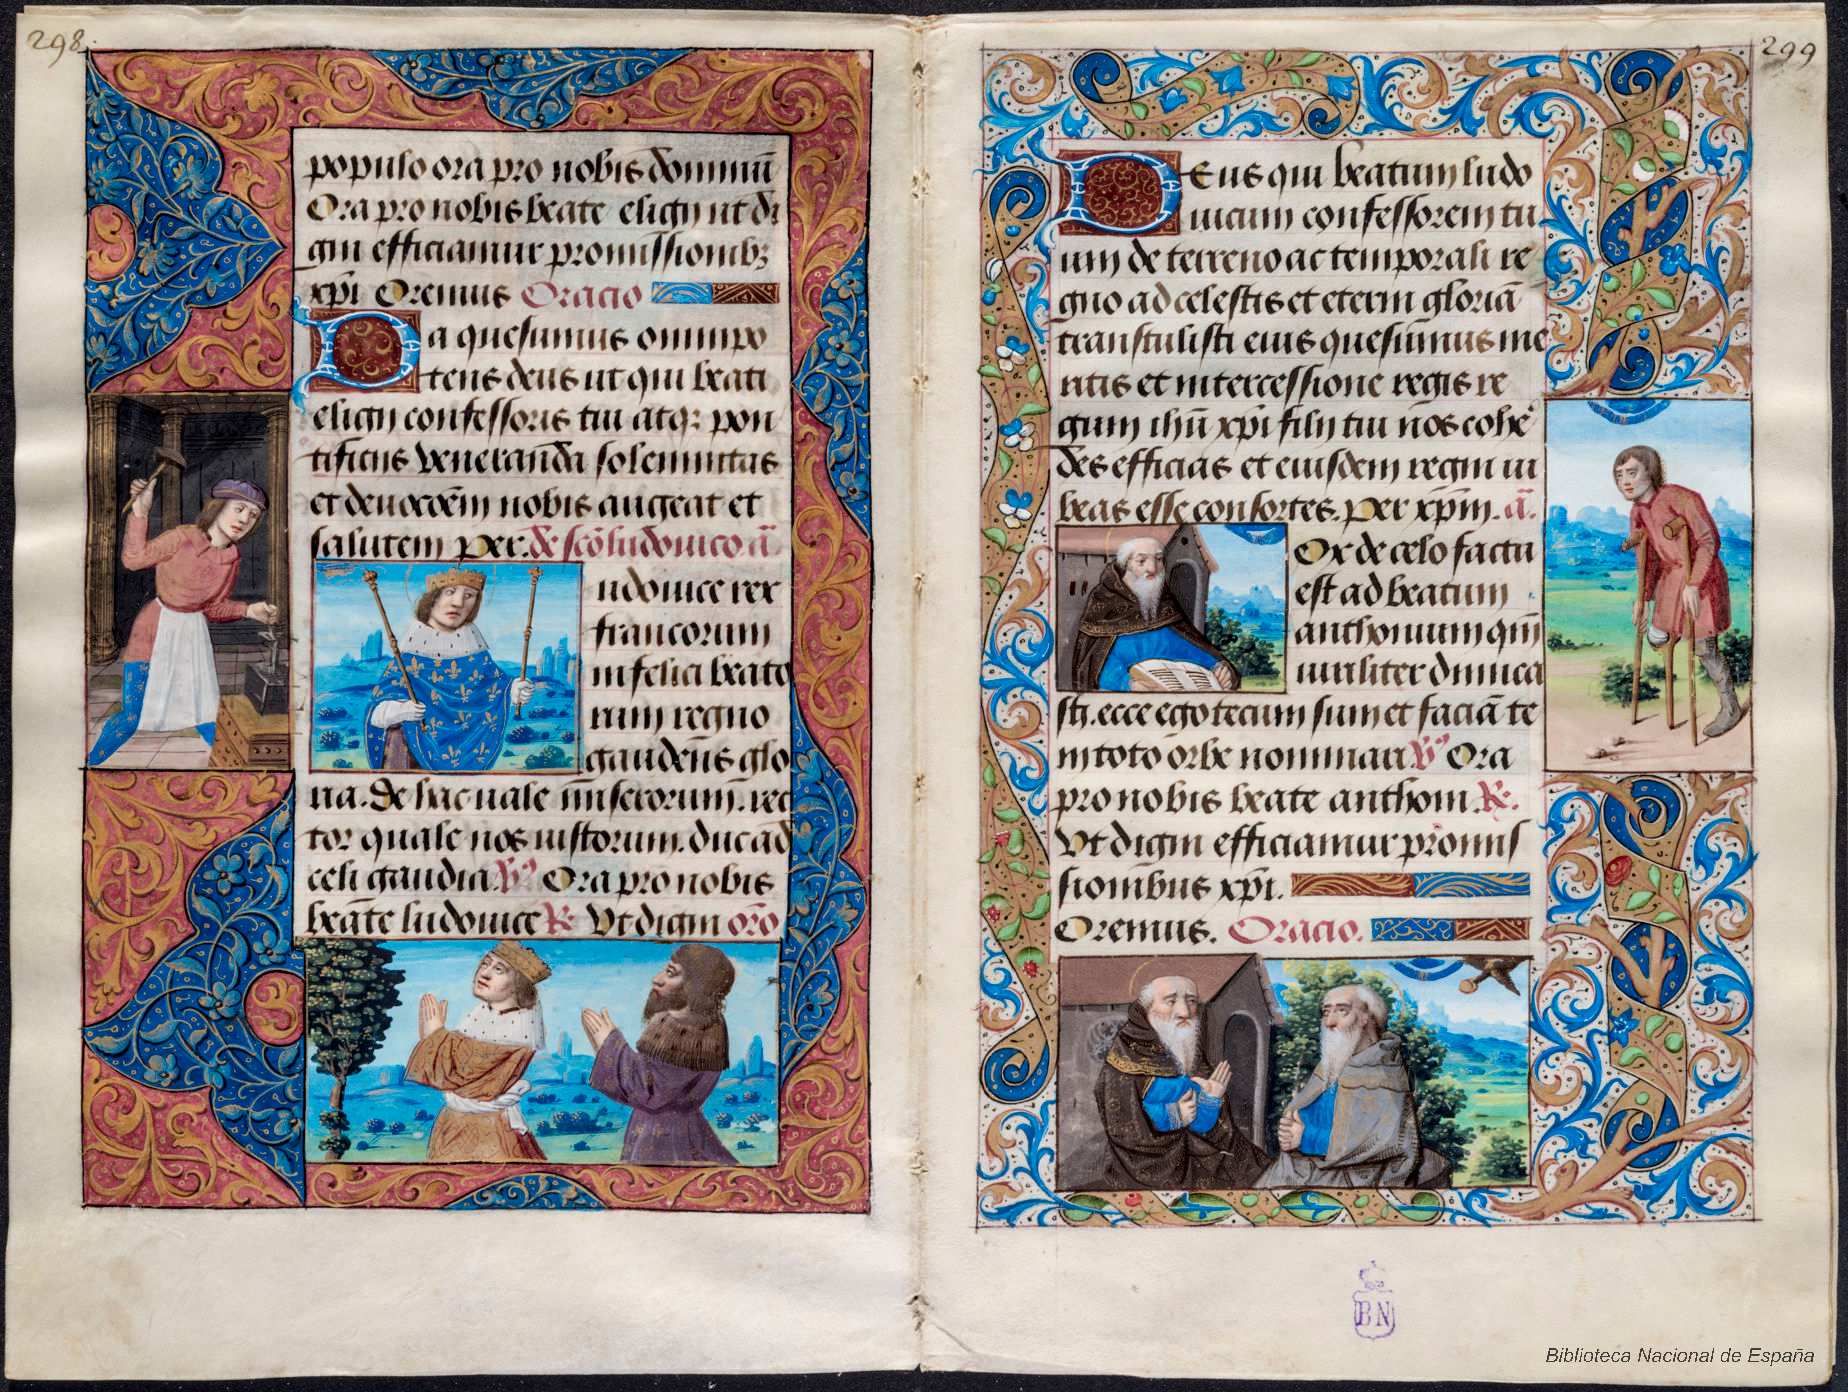 298.
populo ora pro nobis dominū
Ora pro nobis beate eligij ut di
gni efficiamur promissionibꝫ
xp̄i Oremus Oracio
Da quesumus omnipo
tens deus ut qui beati
eligij confessoris tui atqꝫ pon
tificis veneranda solemnitas
et deuocōem nobis augeat et
salutem Per. de scō ludouico. añ.
udouice rex
francorum
in felici beato
rum regno
gaudens glo
ria. de hac ualle miserorum. rec
tor quale nos iustorum. duc ad
celi gaudia. ℣ Ora pro nobis
beate ludouice ℟ Vt digni orō
299
Deus qui beatum ludo
uicum confessorem tu
um de terreno ac temporali re
gno ad celestis et eterni gloriā
transtulisti eius quesumus me
ritis et intercessione regis re
gum ihū xp̄i filij tui nos cohe
des efficias et eiusdem regni tri
beas esse confortes. Per xp̄m. añ.
Ox de celo facta
est ad beatum
anthonium qm̄
uiriliter dimica
sti. ecce ego tecum sum et faciā te
in toto orbe nominari ℣ Ora
pro nobis beate anthoni ℟.
Vt digni efficiamur promis
sionibus xp̄i.
Oremus. Oracio.
BN
Biblioteca Nacional de España